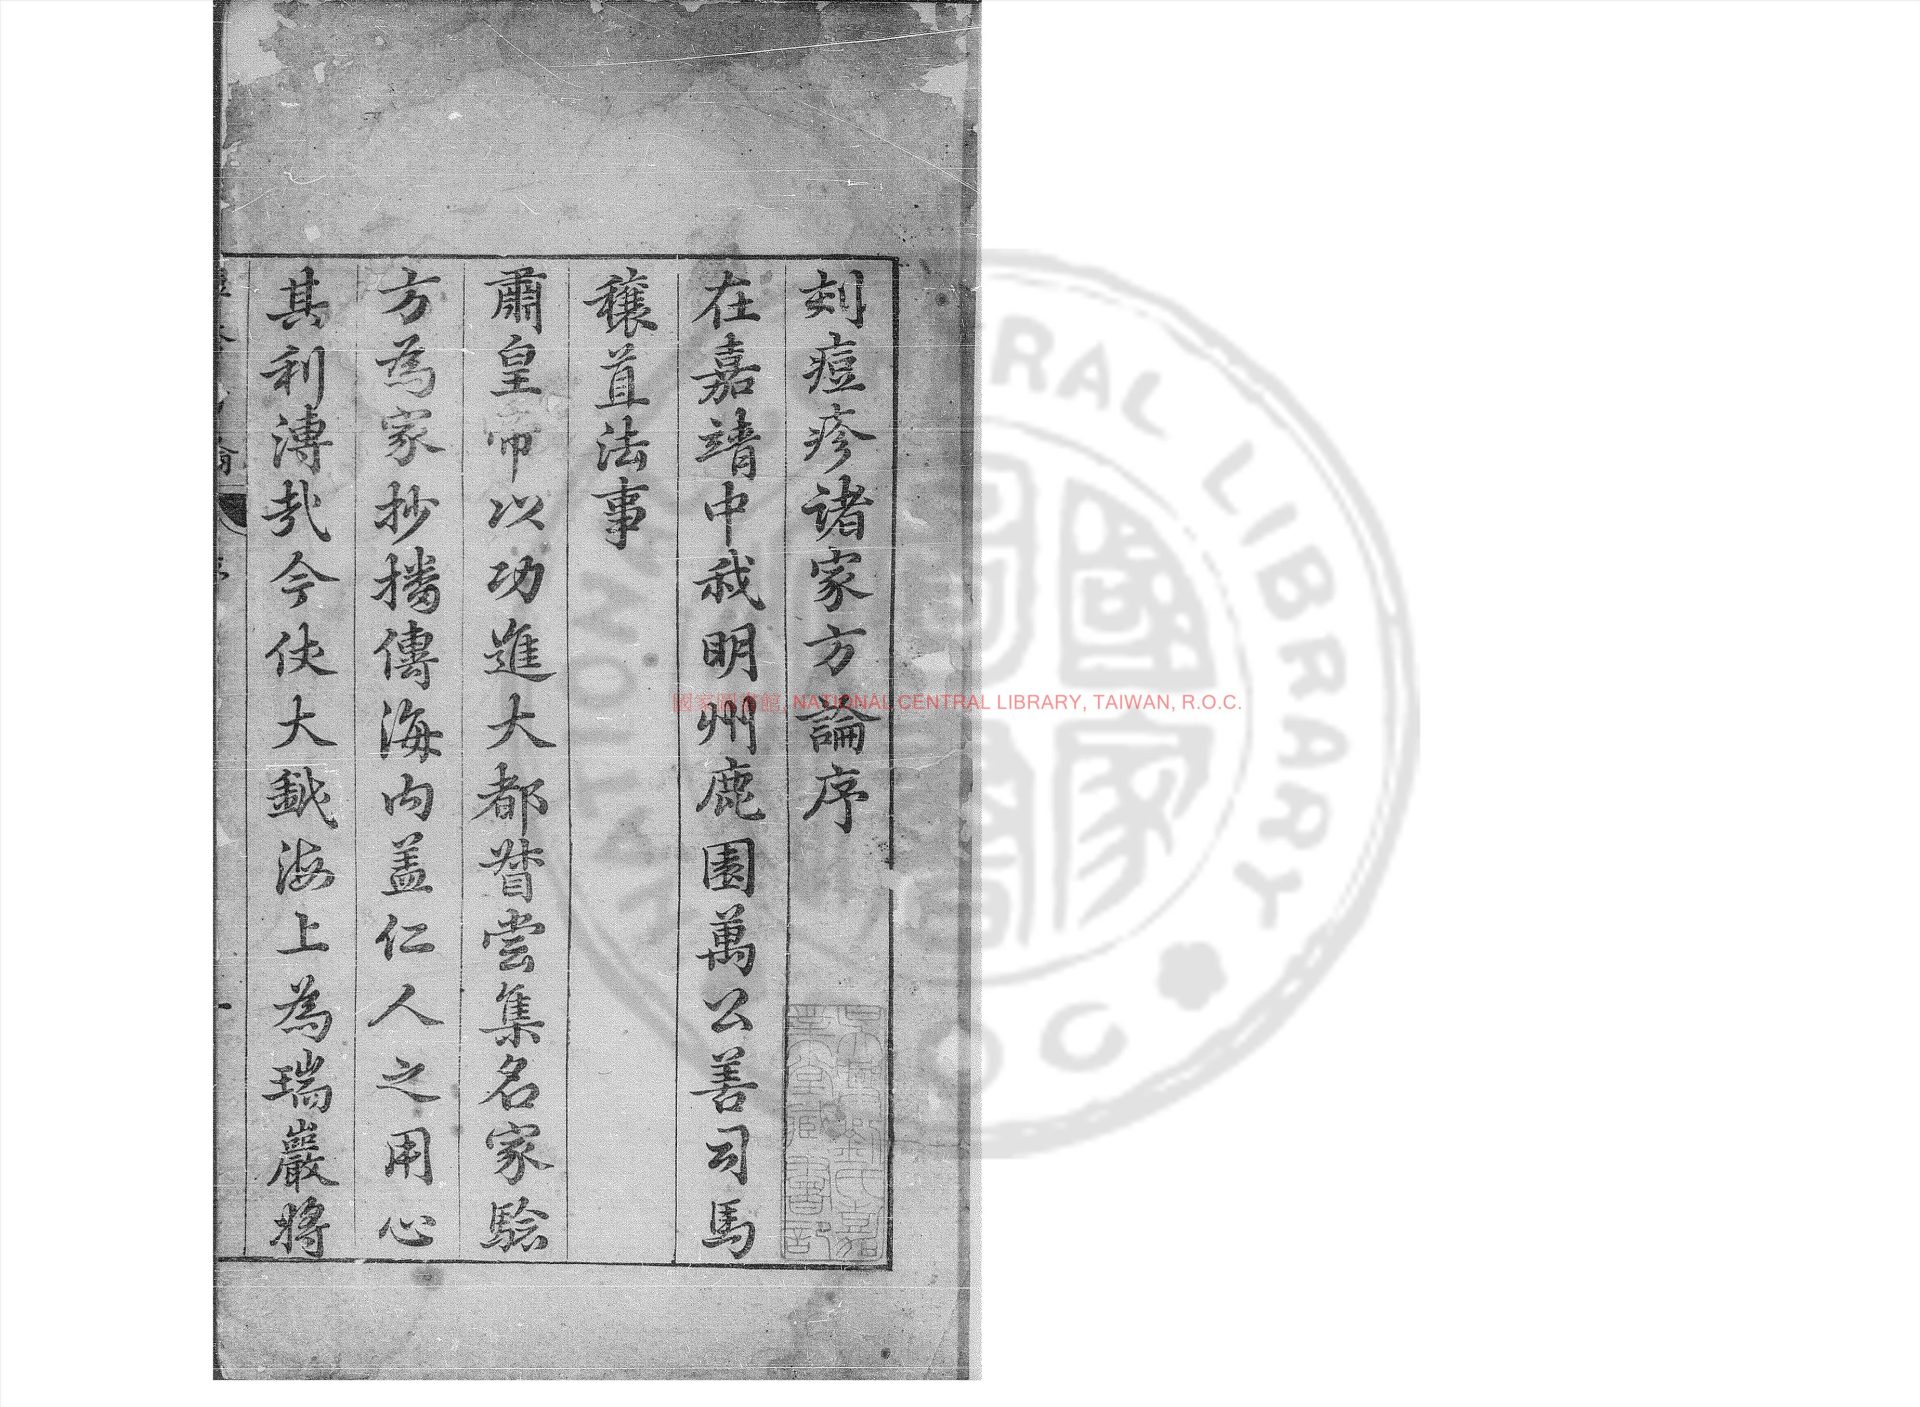 刻痘疹諸家方論序
在嘉靖中我明州鹿園萬公善司馬
穰苴法事
肅皇帝以功進大都督嘗集名家驗
方為家抄播傳海內盖仁人之用心
其利溥哉今伕大鉞海上為瑞巖將
國家圖書館, NATIONAL CENTRAL LIBRARY, TAIWAN, R.O.C.